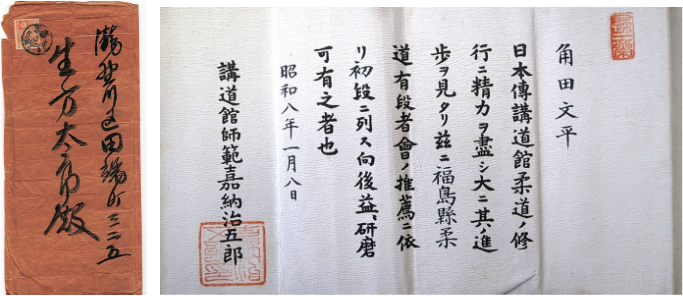 瀧野川區田端町三二五
生方太郎殿
角田文平
日本傳講道館柔道ノ修
行ニ精力ヲ盡シ大ニ其ノ進
歩ヲ見タリ茲ニ福島縣柔
道有段者會ノ推薦ニ依
リ初段ニ列ス向後益〻研磨
可有之者也
昭和八年一月八日
講道館師範嘉納治五郎